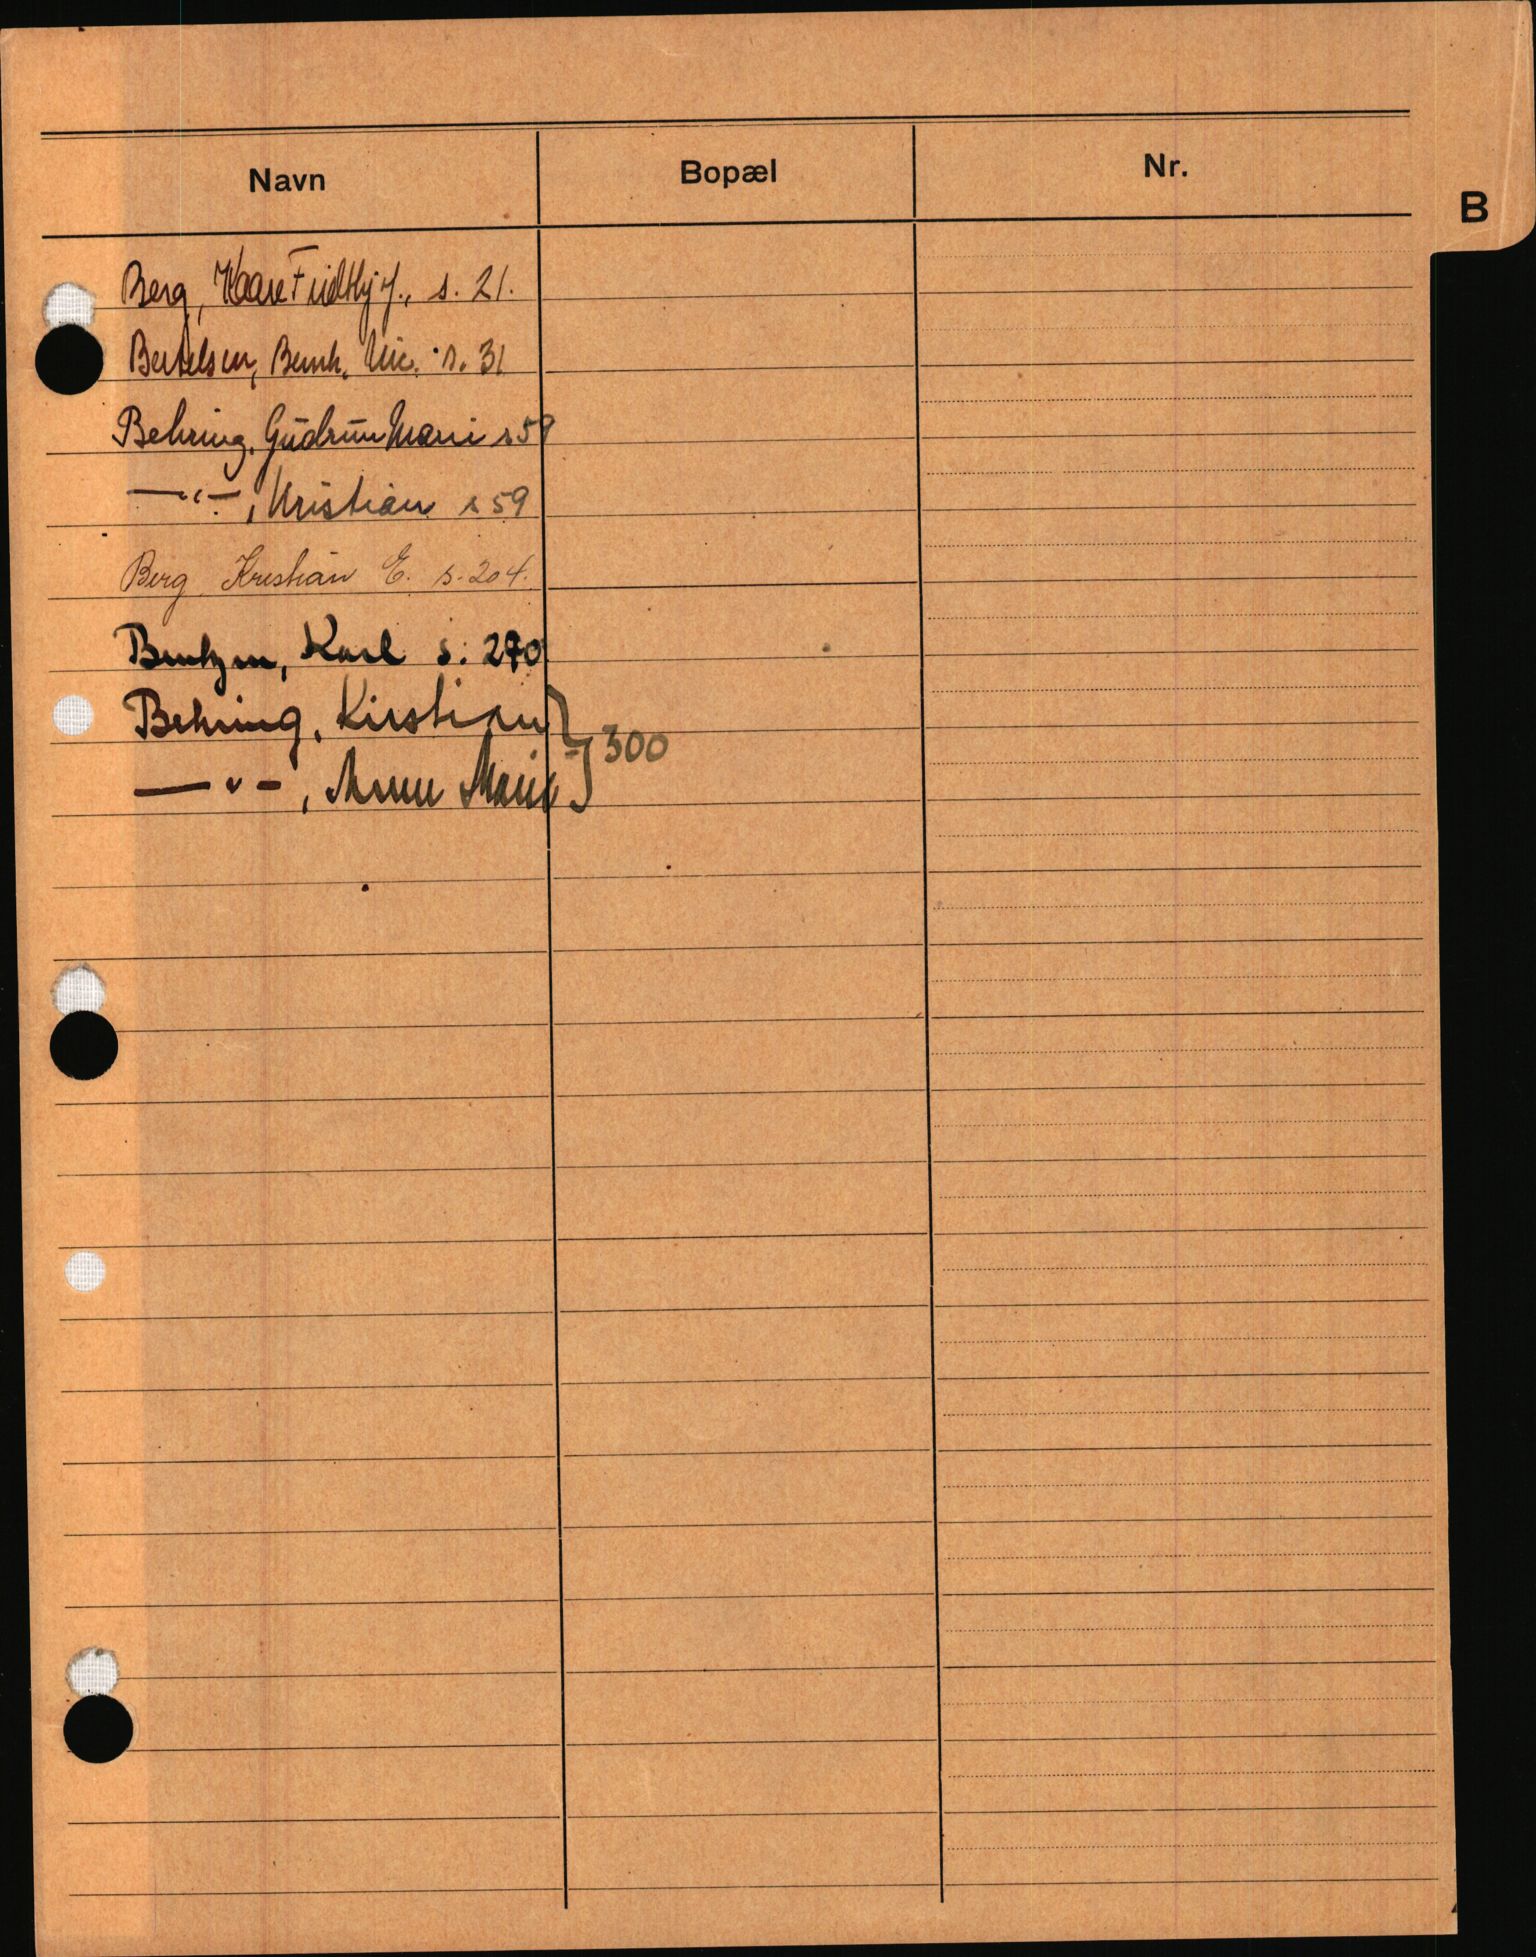 Navn Bopæl Nr.
B
Berg, Kaare Fridthj. f., s. 21.
Bertelsen, Bernh. Nic. s. 31
Behring, Gudrun Marie s 59
—"—, Kristian s 59
Berg, Kristian E. s. 204.
Bentzen, Karl s. 270
Behring, Kirstian
300
—"—, Anne Marie